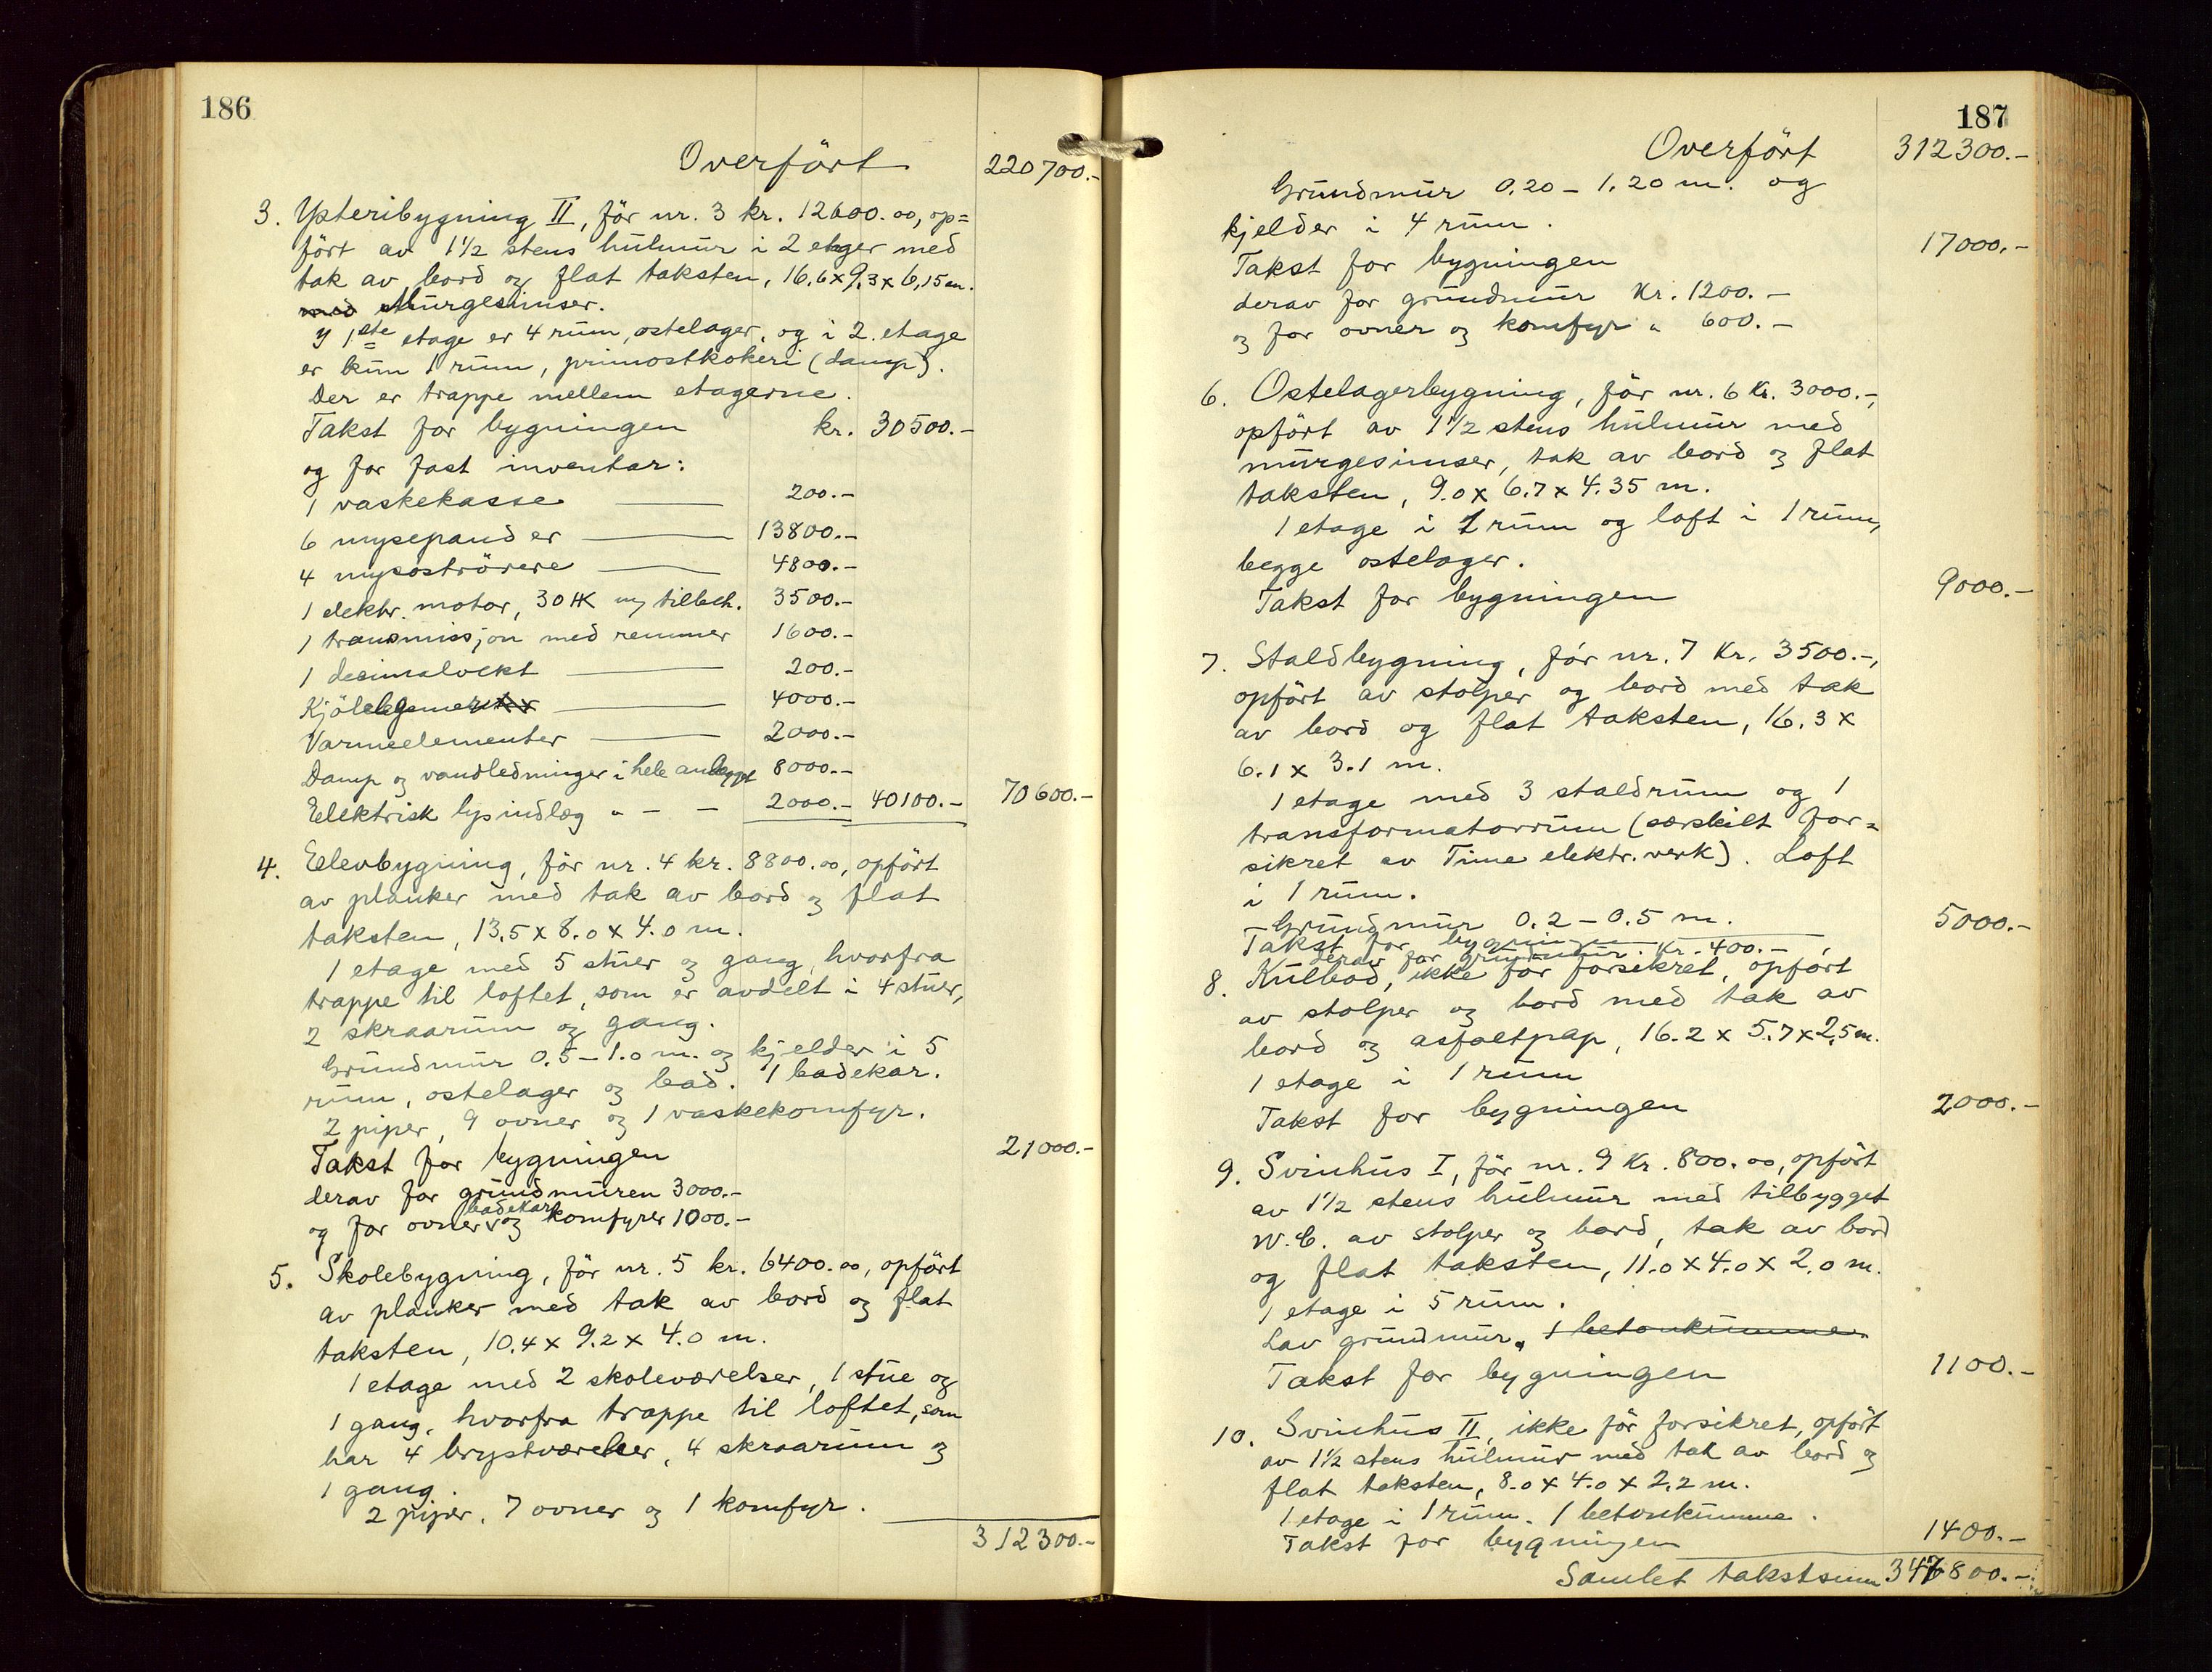 186
Overført 220700.-
3. Ysteribygning II, før nr. 3 kr. 12600.00, op=
ført av 1 1/2 stens hulmur i 2 etager med
tak av bord og flat taksten, 16.6 x 9.3 x 6.15 m.
med Murgesimser.
I 1ste etage er 4 rum, ostelager, og i 2. etage
er kun 1 rum, primostkokeri (damp).
Der er trappe mellem etagerne.
Takst for bygningen kr. 30500.-
og for fast inventar:
1 vaskekasse 200.-
6 mysepander 13800.-
4 mysoströrere 4800.-
1 elektr. motor, 30 HK m/ tilbeh. 3500.-
1 transmissjon med remmer 1600.-
1 desimalvekt 200.-
Kjöle 4000.-
Varmeelementer 2000.-
Damp og vandledninger i hele anlegget 8000.-
Elektrisk lysindlæg " - - 2000.- 40100.- 70600.-
4. Elevbygning, før nr. 4 kr. 8800.00, opført
av planker med tak av bord og flat
taksten, 13.5 x 8.0 x 4.0 m.
1 etage med 5 stuer og gang, hvorfra
trappe til loftet, som er avdelt i 4 stuer,
2 skraarum og gang.
Grundmur 0.5 - 1.0 m. og kjelder i 5
rum, ostelager og bad. 1 badekar.
2 piper, 9 ovner og 1 vaskekomfyr.
Takst for bygningen 21000.-
derav for grundmuren 3000.-
badekar
og for ovner v og komfyrer 1000.-
5. Skolebygning, før nr. 5 kr. 6400.00, opført
av planker med tak av bord og flat
taksten, 10.4 x 9.2 x 4.0 m.
1 etage med 2 skoleværelser, 1 stue og
1 gang, hvorfra trappe til loftet, som
har 4 brystværelser, 4 skraarum og
1 gang.
2 piper, 7 ovner og 1 komfyr.
312300.-
187
Overført 312300.-
Grundmur 0.20 - 1.20 m. og
kjelder i 4 rum.
Takst for bygningen 17000.-
derav for grundmur Kr. 1200.-
og for ovner og komfyr " 600.-
6. Ostelagerbygning, før nr. 6 Kr. 3000.-,
opført av 1 1/2 stens hulmur med
murgesimser, tak av bord og flat
taksten, 9.0 x 6.7 x 4.35 m.
1 etage i 1 rum og loft i 1 rum,
begge ostelager.
Takst for bygningen 9000.-
7. Staldbygning, før nr. 7 Kr. 3500.-,
opført av stolper og bord med tak
av bord og flat taksten, 16.3 x
6.1 x 3.1 m.
1 etage med 3 staldrum og 1
transformatorrum (særskilt for=
sikret av Time elektr. verk). Loft
i 1 rum.
Grundmur 0.2 - 0.5 m.
Takst for bygningen 5000.-
derav for grundmur Kr. 400.-
8. Kulbod, ikke før forsikret, opført
av stolper og bord med tak av
bord og asfaltpap, 16.2 x 5.7 x 2.5 m.
1 etage i 1 rum
Takst for bygningen 2000.-
9. Svinhus I, før nr. 9 Kr. 800.00, opført
av 1 1/2 stens hulmur med tilbygget
W.C. av stolper og bord, tak av bord
og flat taksten, 11.0 x 4.0 x 2.0 m.
1 etage i 5 rum.
Lav grundmur. 1 betonkumme.
Takst for bygningen 1100.-
10. Svinhus II, ikke før forsikret, opført
av 1 1/2 stens hulmur med tak av bord og
flat taksten, 8.0 x 4.0 x 2.2 m.
1 etage i 1 rum. 1 betonkumme.
Takst for bygningen 1400.-
Samlet takstsum 347800.-